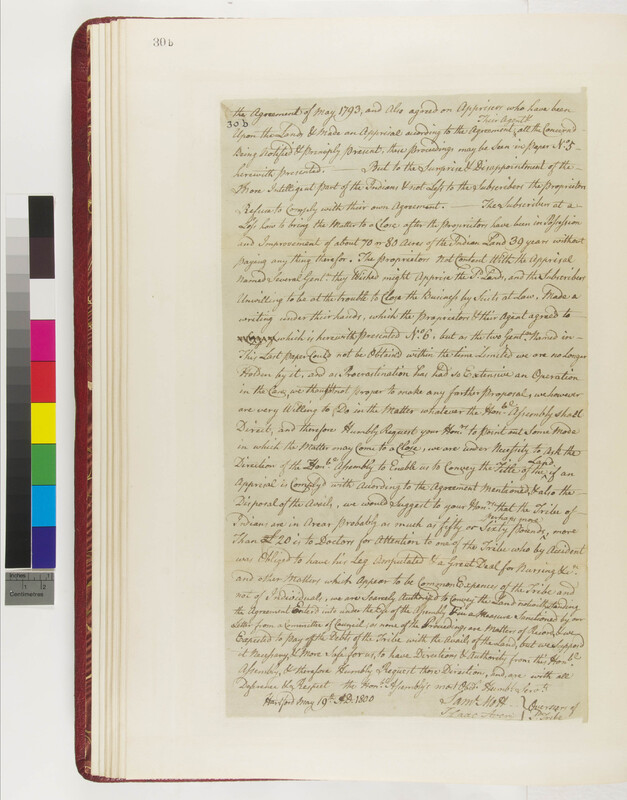 30b
the Agreement of May 1793, and Also agreed on Apprisers who have been
30 b
Upon the Lands & Made an Apprisal acording to the Agreement, all the Concernd
their Agent &c
Being Notifid & principly Present, these proceedings may be Seen in paper No. 5
herewith presented. — But to the Surprise & Disappointment of the
More Intelligent part of the Indians & not Less to the Subscribers the proprietors
Refuse to Comply with their own Agreement. — The Subscribers at a
Loss how to bring the Matter to a Close after the Proprietors have been in Possession
and Improvement of about 70 or 80 Acres of the Indian Land 39 years without
paying any thing therefor. The proprietors Not Content With the Apprisal
Named Several Gentn. they Wished might Apprise the Sd. Lands, and the Subscribers
Unwilling to be at the trouble to Close the Business by Suits at Law, Made a
writing under their hands, which the Proprietors & their Agent agreed to
which is herewith presented No. 6, but as the two Gentn. Named in
This Last paper Could not be Obtaind within the time Limited we are no Longer
Holden by it, and as Procrastination has had so Extensive an Operation
in the Case, we think not proper to make any farther Proposal, we however
are very Willing to Do in the Matter whatever the Honbl. Assembly shall
Direct, and therefore Humbly Request your Honrs. to point out Some Mode
in which the Matter may Come to a Close, we are under Necessity to ask the
Direction of the Honble Assembly to Enable us to Convey the Title of the Land if an
Apprisal is Complyd with Acording to the Agreement Mentioned, & also the
Disposal of the Avails, we would Suggest to your Honrs. that the Tribe of
Indians are in Arear Probably as much as fifty or Sixty Pounds, more
perhaps more
Than £20 is to Doctors for Attention to one of the Tribe who by Accident
was Obligd to have his Leg Amputated & a Great Deal for Nursing &c.
and other Matters which Appear to be Common Expences of the Tribe and
not of Individuals, we are Scarcely Authorizd to Convey the Land notwithstanding
the Agreement Enterd into under the Eye of the Assembly & in a Measure Sanctioned by our
Letter from a Committee of Council, as none of the Proceedings are Matters of Record, & we
Expected to Pay of the Debts of the Tribe with the Avails of the Land, but we Suppose
it Necessary & More Safe for us, to have Directions & Authority from this Honble.
Assembly, & therefore Humbly Request those Direction, and, are with all
Defference & Respect the Honl. Assembly's most Obdt. Humbl. Servts.
Hartford May 19th. AD. 1800
Saml. Mott
Isaac Avery
Overseers of
sd. Tribe